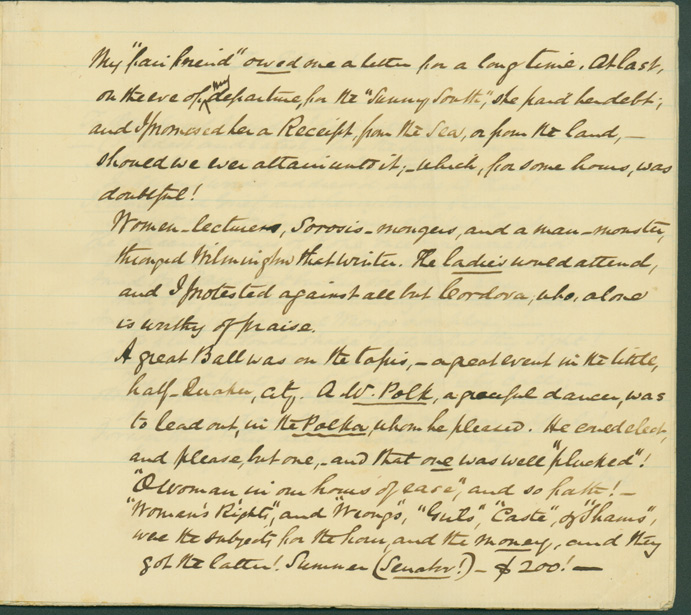 My "fair friend" owed me a letter for a long time. At last,
on the eve of my departure, for the "Sunny South", she paid her debt;
and I promised her a Receipt, from the Sea, or from the land, —
should we ever attain unto it; — which, for some hours, was
doubtful!
Women-lecturers, Sorosis-mongers, and a man-monster,
thronged Wilmington that winter. The ladies would attend,
and I protested against all but Cordova, who, alone
is worthy of praise.
A great Ball was on the tapis, — a great event in the little,
half-Quaker, city. A W. Polk, a graceful dancer, was
to lead out, in the Polka, whom he pleased. He could elect,
and please, but one, — and that one was well "plucked"!
"O woman in our hours of ease", and so forth! —
"Woman's Rights", and "Wrongs", "Guts", "Caste", of "Shams",
were the subjects for the hour, and the money, and they
got the latter! Sumner (Senator!) — $200! —